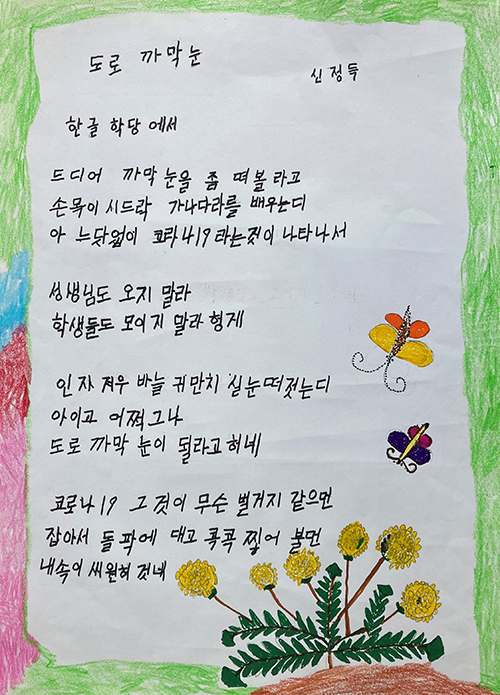 도로 까막눈
신정득
한글 학당에서
드디어 까막눈을 좀 떠볼라고
손목이 시드락 가나다라를 배우는디
아 느닷없이 코라나19 라는것이 나타나서
성생님도 오지 말라
학생들도 모이지 말라 헝게
인자 겨우 바늘 귀만치 실눈떠젓는디
아이고 어쩌그나
도로 까막 눈이 될라고 허네
코로나19 그것이 무슨 벌거지 같으면
잡아서 돌팍에 대고 콕콕 찧어 불먼
내속이 씨원허 것네